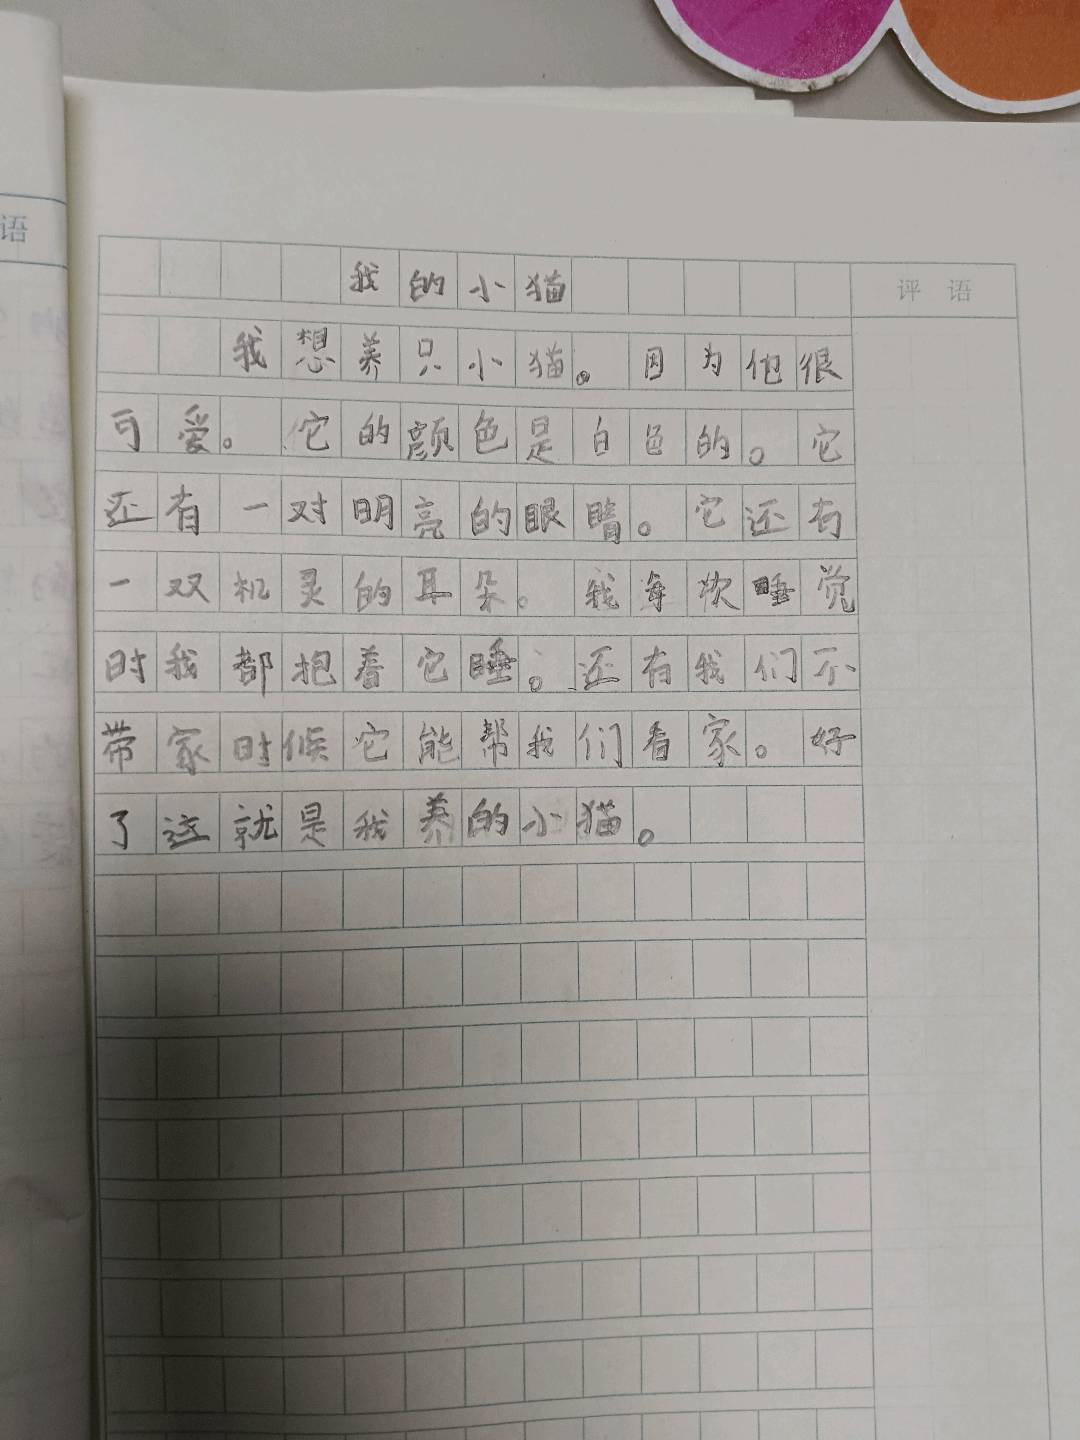 语
我的小猫
评语
我想养只小猫。因为他很
可爱。它的颜色是白色的。它
还有一对明亮的眼睛。它还有
一双机灵的耳朵。我每次睡觉
时我都抱着它睡。还有我们不
带家时候它能帮我们看家。好
了这就是我养的小猫。